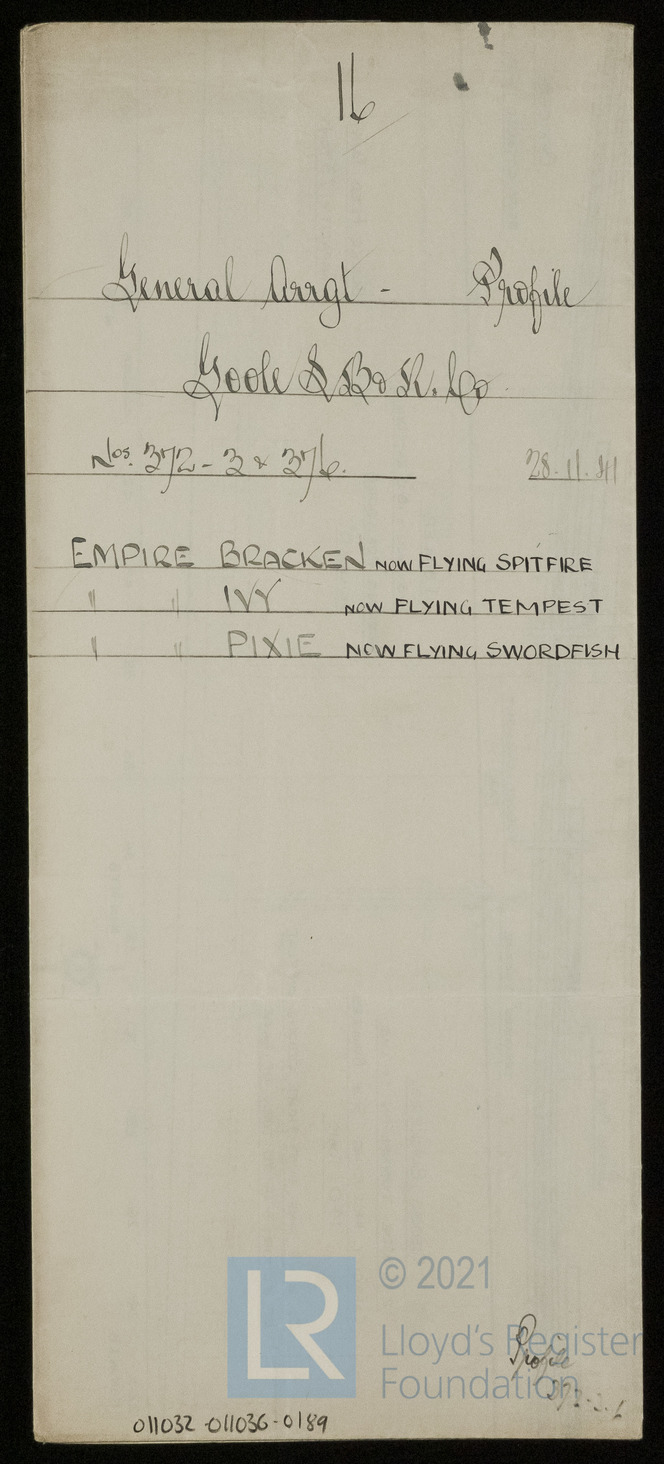 16
General Arrgt - Profile
Goole S Bg & R. Co
Nos. 372-3 & 376. 28.11.41
EMPIRE BRACKEN NOW FLYING SPITFIRE
" " IVY NOW FLYING TEMPEST
" " PIXIE NOW FLYING SWORDFISH
LR
© 2021
Lloyd's Register
Foundation
Profile
011032-011036-0189